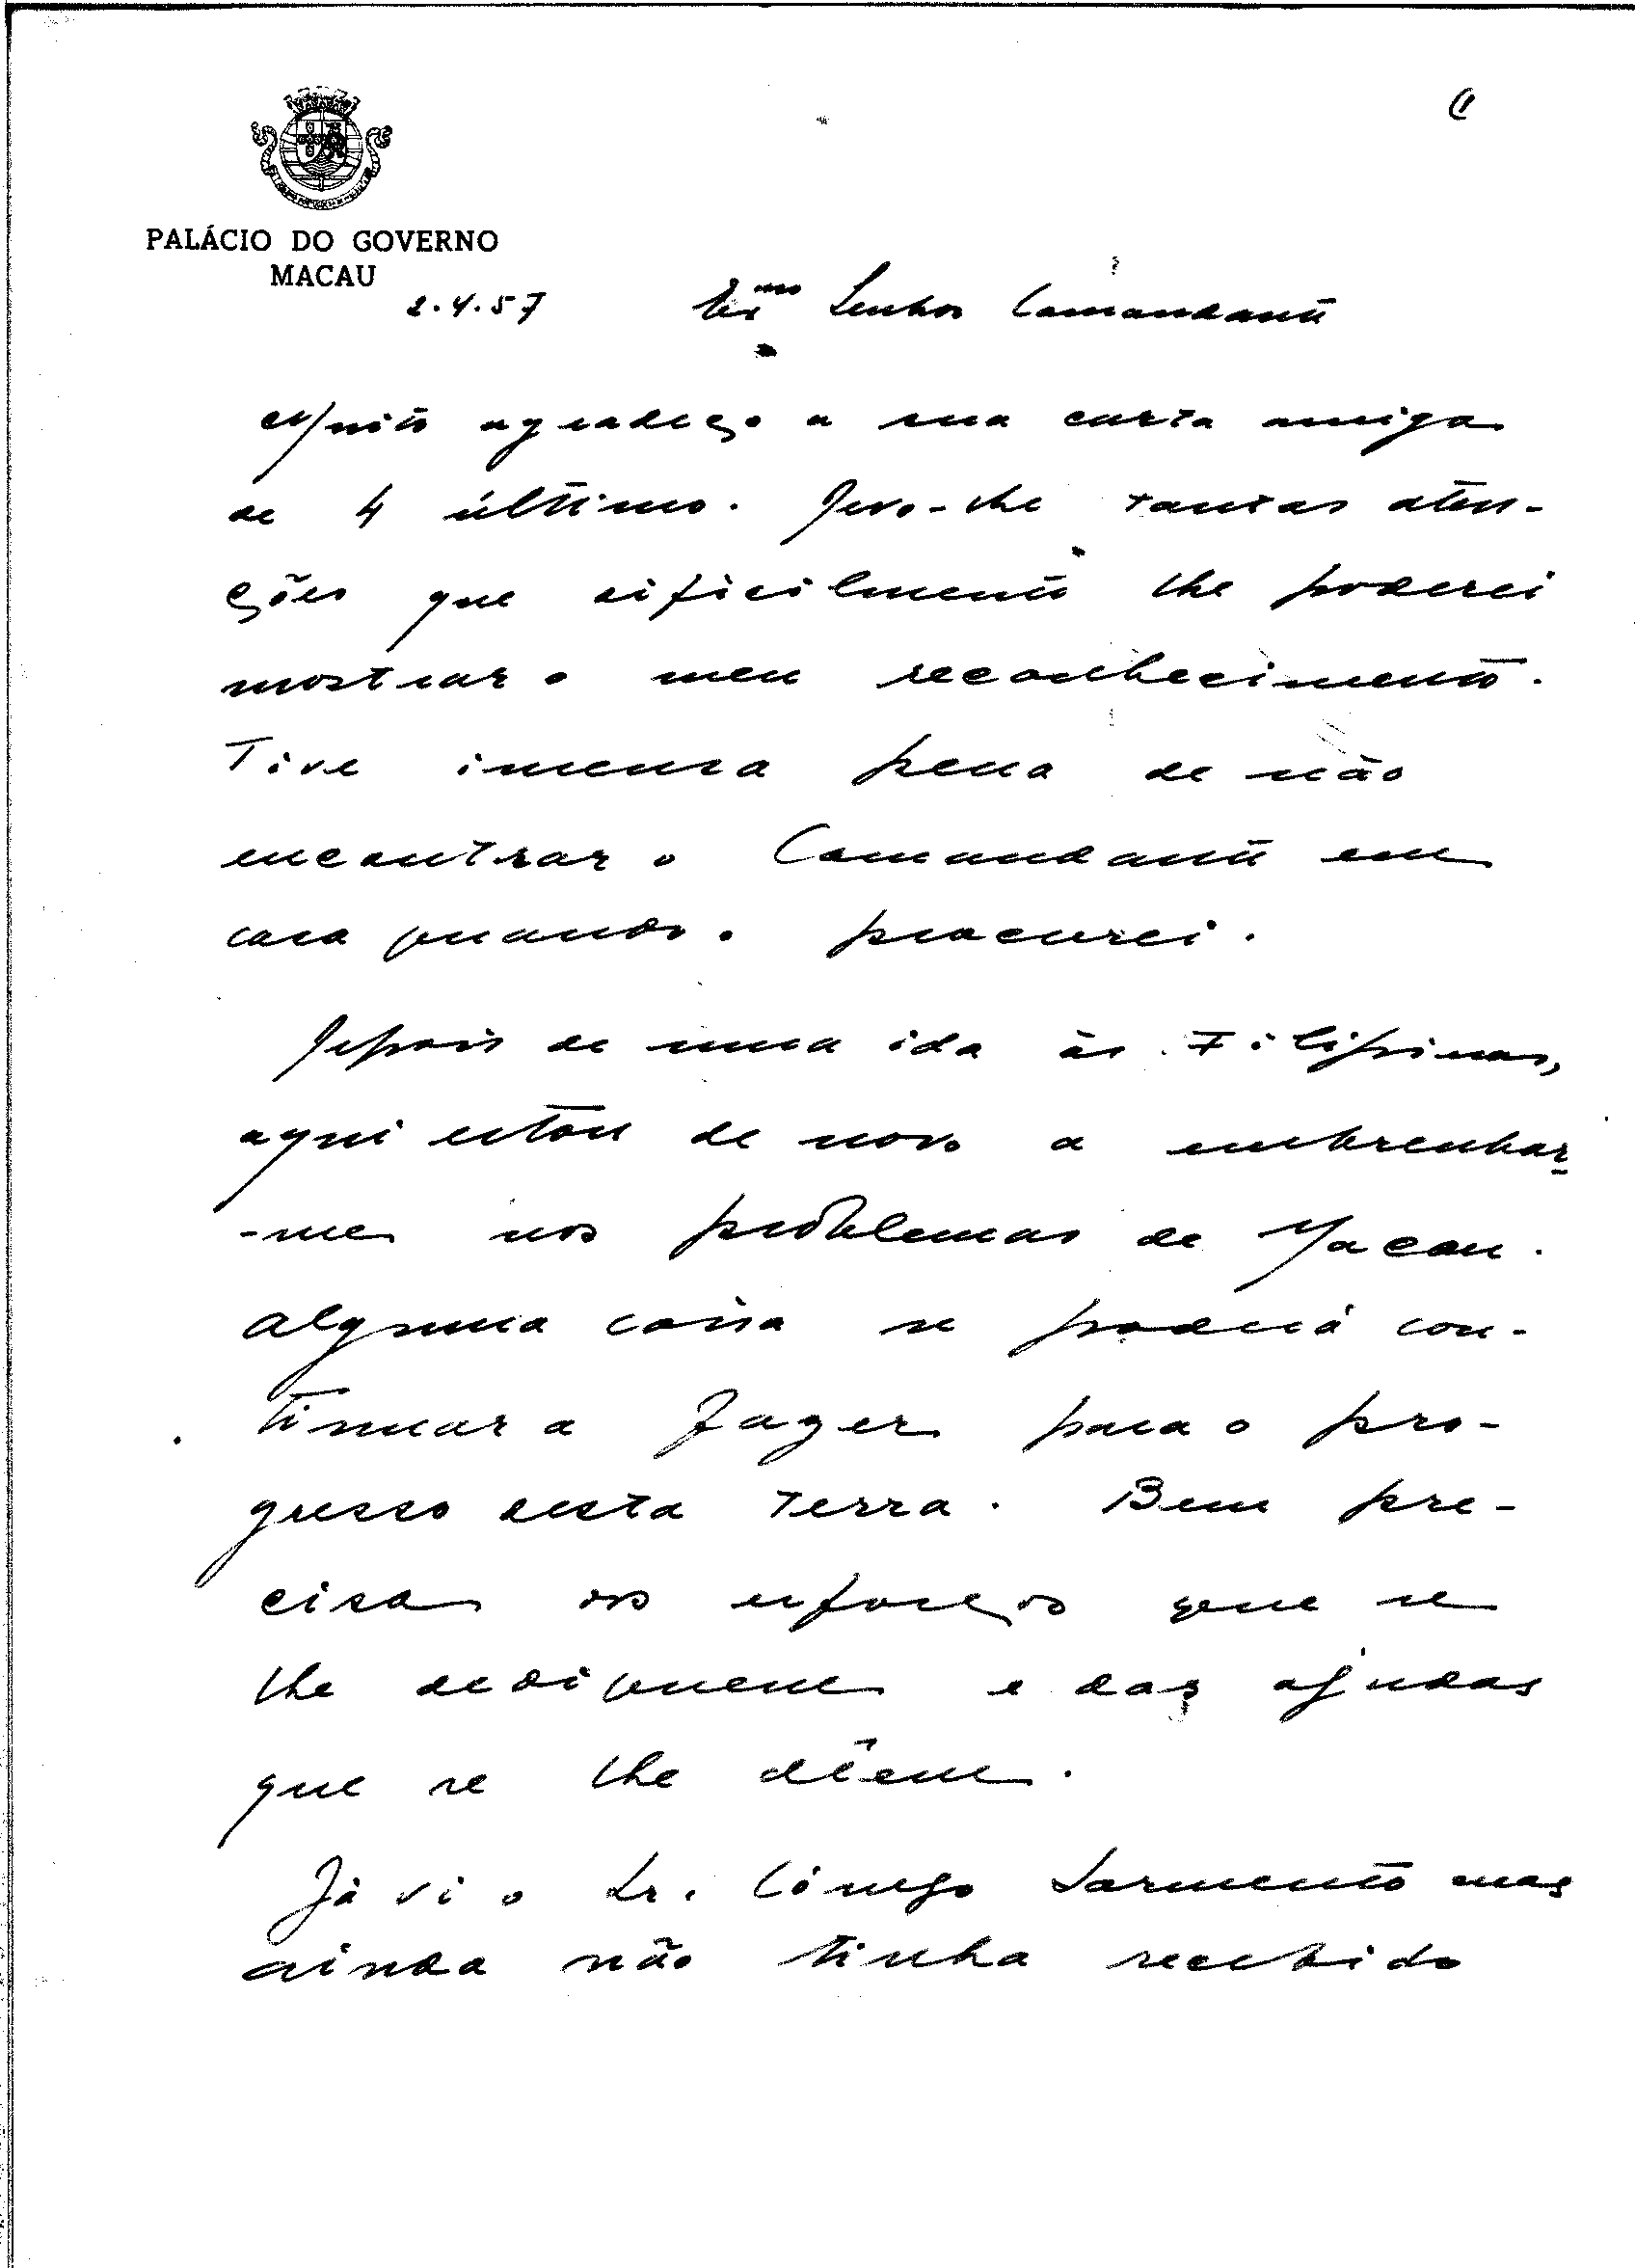 PALÁCIO DO GOVERNO
MACAU
2.4.57
Exmo Senhor Comandante
Muito agradeço a sua carta amiga
de 4 último. Devo-lhe tantas aten-
ções que dificilmente lhe poderei
mostrar o meu reconhecimento.
Tive imensa pena de não
encontrar o Comandante em
casa quando o procurei.
Depois de uma ida às Filipinas,
aqui estou de novo a embrenhar-
-me nos problemas de Macau.
Alguma coisa se poderá con-
tinuar a fazer para o pro-
gresso desta terra. Bem pre-
cisa dos esforços que se
lhe dediquem e das ajudas
que se lhe dêem.
Já vi o Sr. Cónego Sarmento mas
ainda não tinha recebido